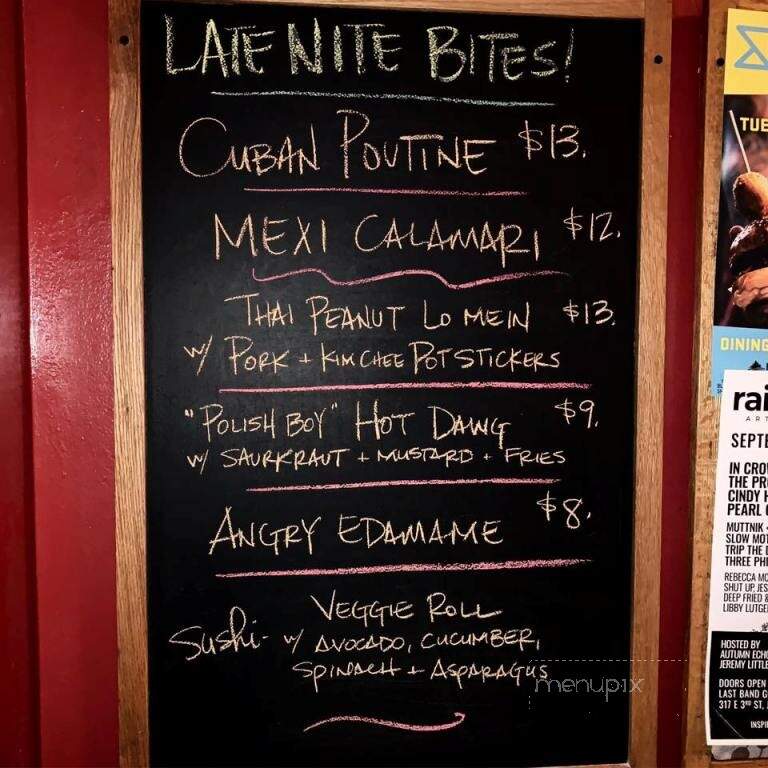 LATE NITE BITES!
CUBAN POUTINE $13.
MEXI CALAMARI $12.
THAI PEANUT LO MEIN $13.
W/ PORK + KIMCHEE POTSTICKERS
"POLISH BOY" HOT DAWG $9.
W/ SAURKRAUT + MUSTARD + FRIES
ANGRY EDAMAME $8.
VEGGIE ROLL
Sushi- W/ AVOCADO, CUCUMBER,
SPINACH + ASPARAGUS
menupix
TUE
DINING
rai
ART
SEPTE
IN CRO
THE PR
CINDY H
PEARL
MUTTNIK
SLOW MOT
TRIP THE
THREE PH
REBECCA MC
SHUT UP, JES
DEEP FRIED &
LIBBY LUTGE
HOSTED BY
AUTUMN ECHO
JEREMY LITTLE
DOORS OPEN
LAST BAND
317 E 3RD ST,
INSPI